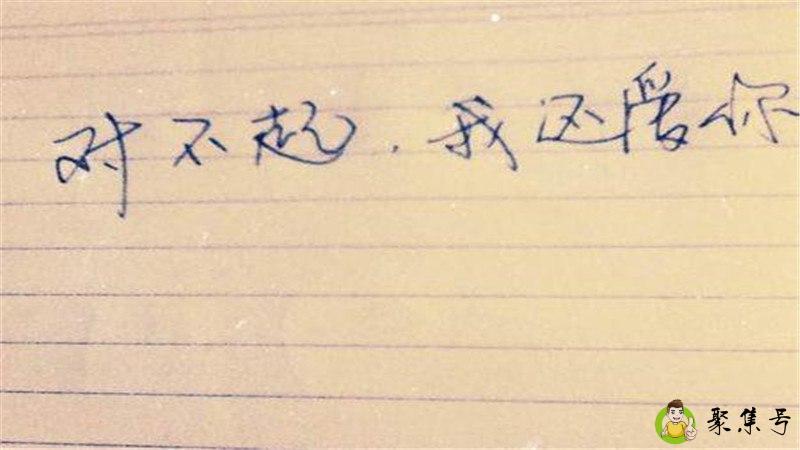 对不起.我还爱你
聚集号